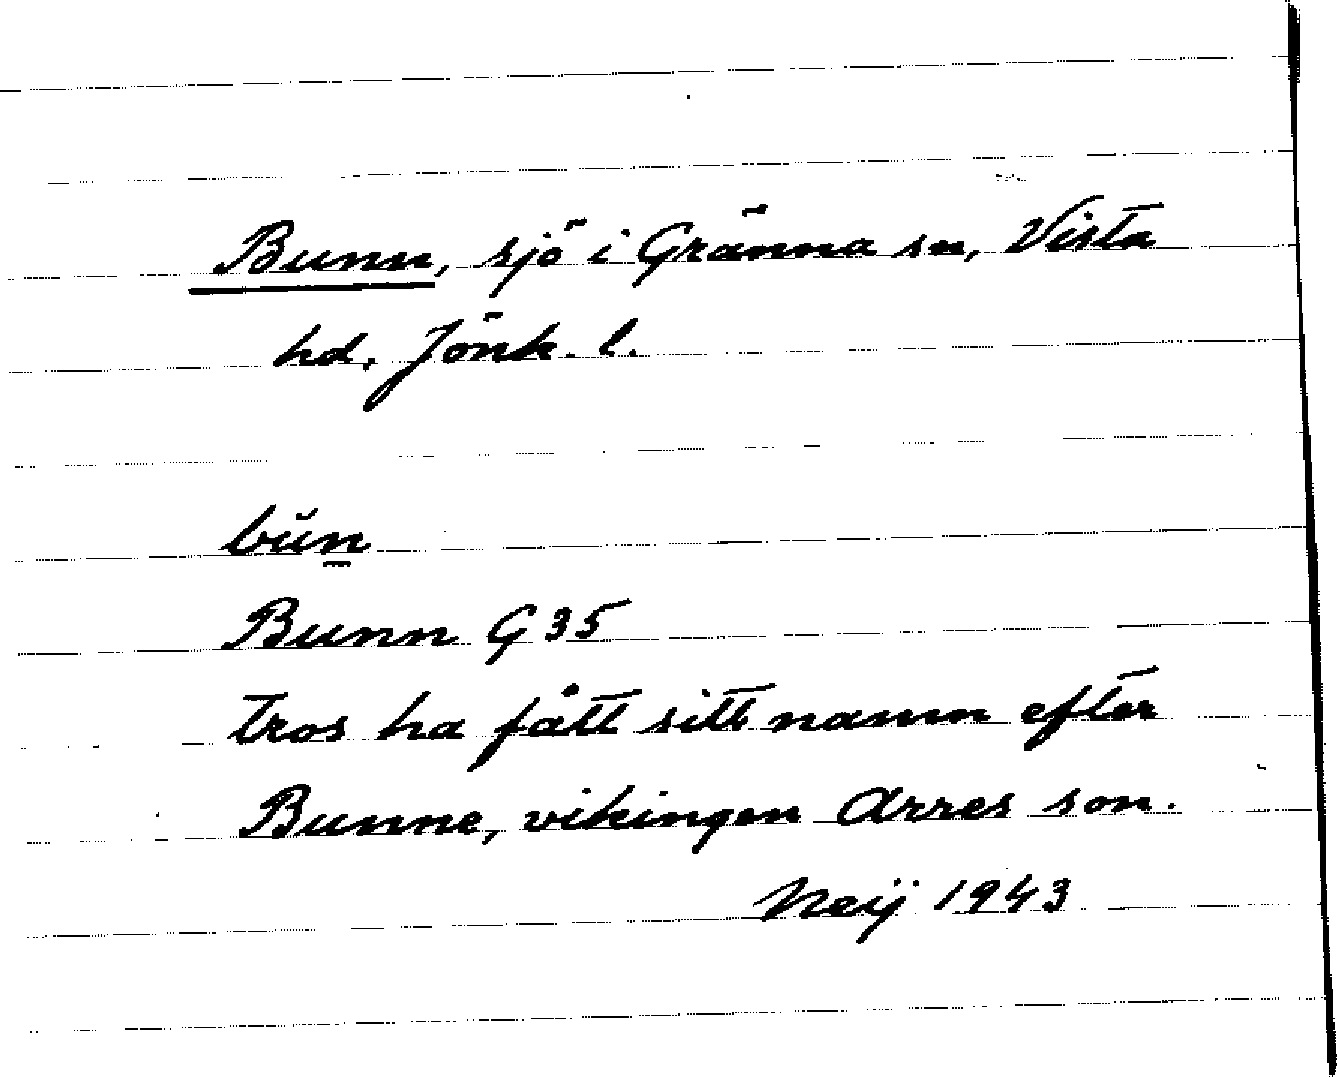 Bunn, sjö i Gränna sn, Vista
hd, Jönk. l.
bŭn̲
Bunn G 35
tros ha fått sitt namn efter
Bunne, vikingen Arres son.
Neij 1943